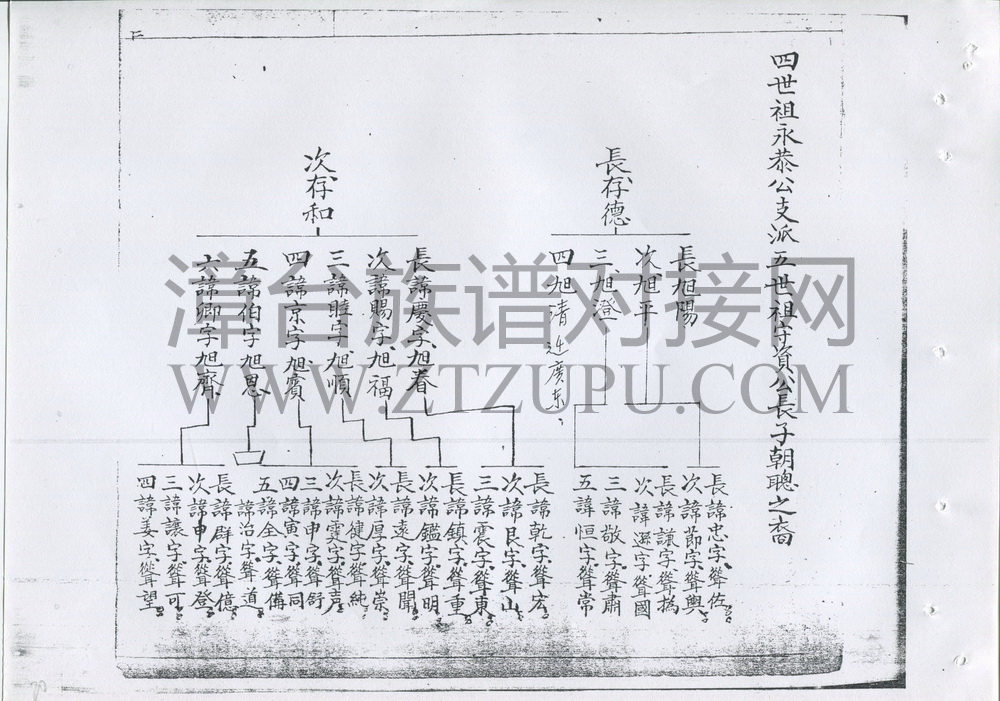 四世祖永恭公支派五世祖守資公長子朝聰之裔
長存德
長旭陽
次旭平
三旭登
四旭清 迁廣东
長諱忠字聳佐
次諱節字聳輿
長諱讓字聳
次諱遜字聳國
三諱敬字聳肅
五諱恒字聳常
次存和
長諱慶字旭春
次諱賜字旭福
三諱睦字旭順
四諱京字旭賓
五諱伯字旭恩
六諱卿字旭齊
長諱乾字聳宏
次諱艮字聳山
三諱震字聳東
長諱鎮字聳重
次諱鑑字聳明
長諱遠字聳聞
次諱厚字聳崇
長諱健字聳純
次諱霆字聳声
三諱申字聳舒
四諱寅字聳同
五諱全字聳備
諱治字聳道
長諱群字聳億
次諱申字聳登
三諱讓字聳可
四諱姜字聳望
漳台族谱对接网
WWW.ZTZUPU.COM